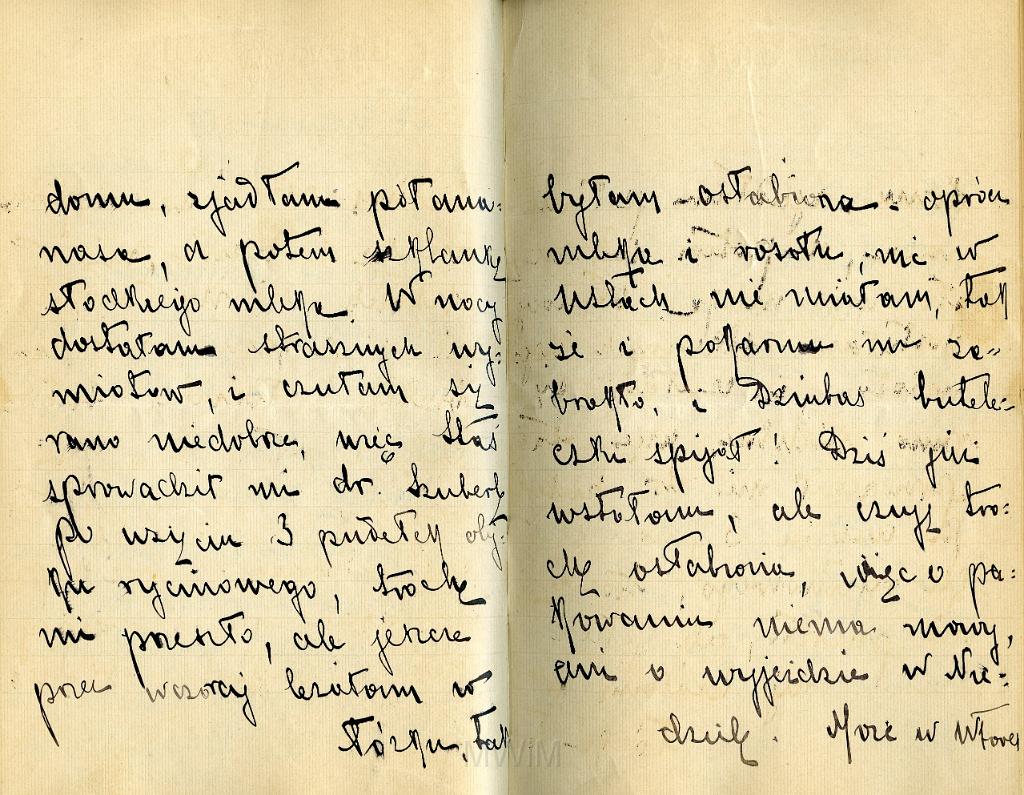 domu, zjadłam pół ana-
nasa, a potem szklankę
słodkiego mleka. W nocy
dostałam strasznych wy-
miotów, i czułam się
rano niedobrze, więc Staś
sprowadził mi dr. Szuberta
Po użyciu 3 pudełek olej-
ku rycinowego, trochę
mi przeszło, ale jeszcze
przez wczoraj leżałam w
łóżku, tak
byłam osłabiona - oprócz
mleka i rosołu, nic w
ustach nie miałam, tak
że i pokarmu mi za-
brakło, i Dziubas butele-
czki spijał! Dziś już
wstałam, ale czuję tro-
chę osłabiona, więc o pa-
kowaniu niema mowy,
ani o wyjeździe w Nie-
dzielę. Może w Wtorek
MWiM